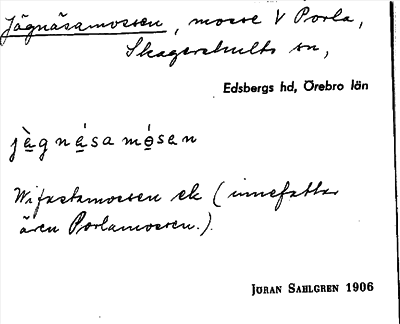 Jägnäsamossen, mosse V Porla,
Skagershults sn,
Edsbergs hd, Örebro län
jàgnásamósen
Wifastamossen ek (innefattar
även Porlamossen.).
JÖRAN SAHLGREN 1906